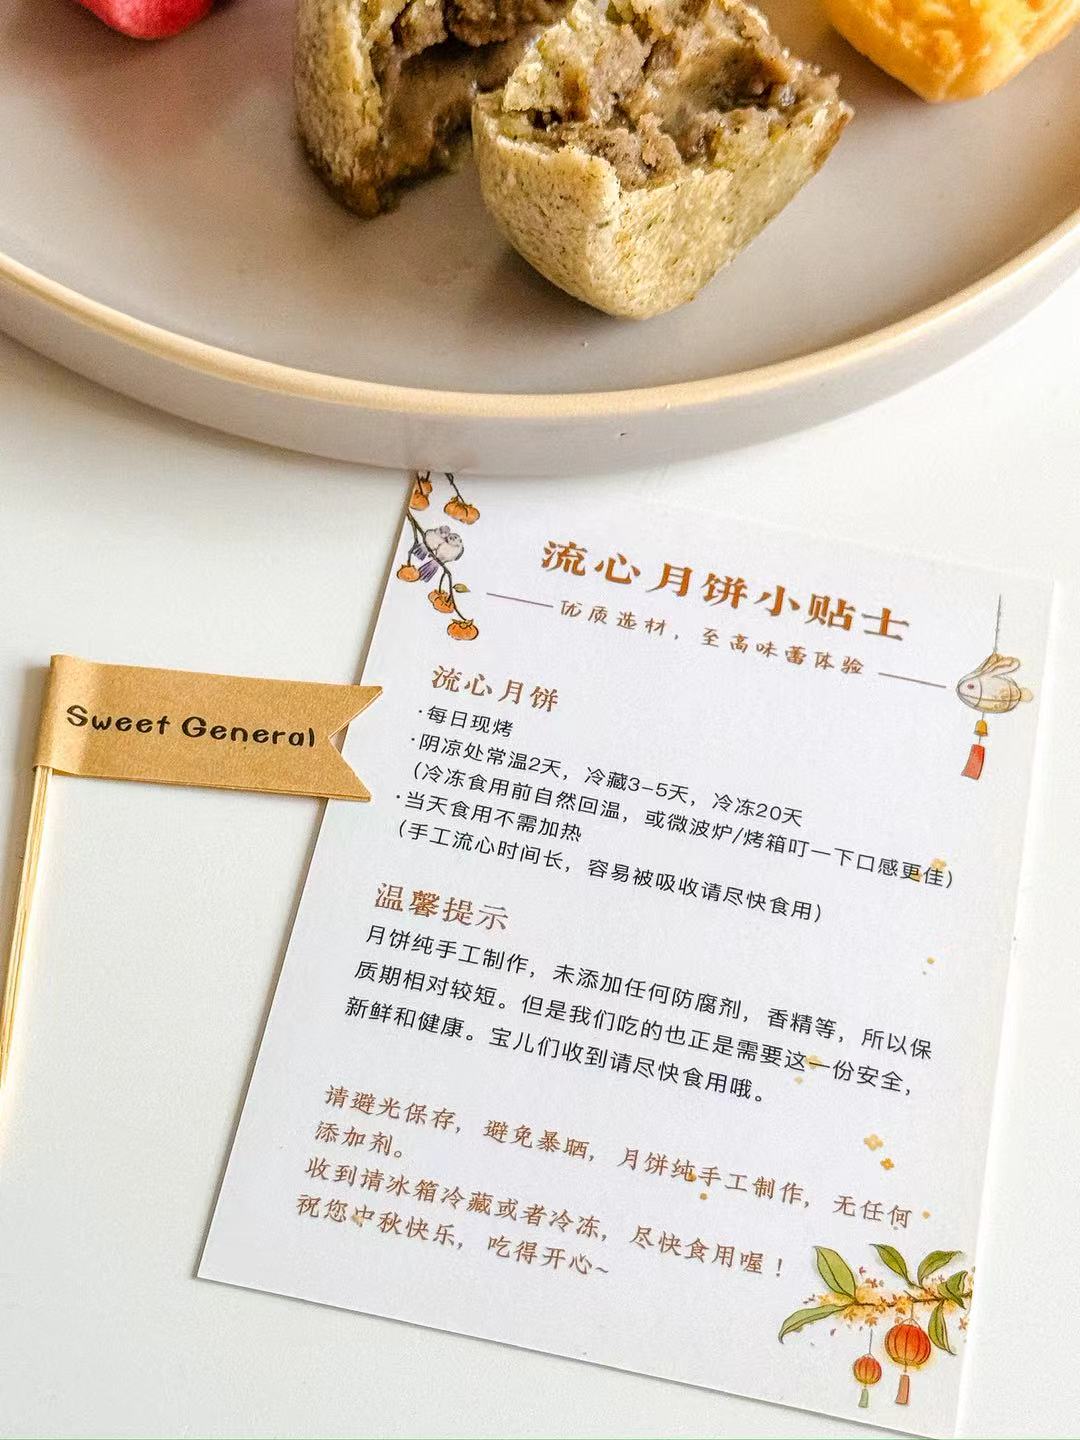 流心月饼小贴士
优质选材，至高味蕾体验
流心月饼
·每日现烤
·阴凉处常温2天，冷藏3-5天，冷冻20天
（冷冻食用前自然回温，或微波炉/烤箱叮一下口感更佳）
·当天食用不需加热
（手工流心时间长，容易被吸收请尽快食用）
温馨提示
月饼纯手工制作，未添加任何防腐剂，香精等，所以保
质期相对较短。但是我们吃的也正是需要这一份安全，
新鲜和健康。宝儿们收到请尽快食用哦。
请避光保存，避免暴晒，月饼纯手工制作，无任何
添加剂。
收到请冰箱冷藏或者冷冻，尽快食用喔！
祝您中秋快乐，吃得开心~
Sweet General